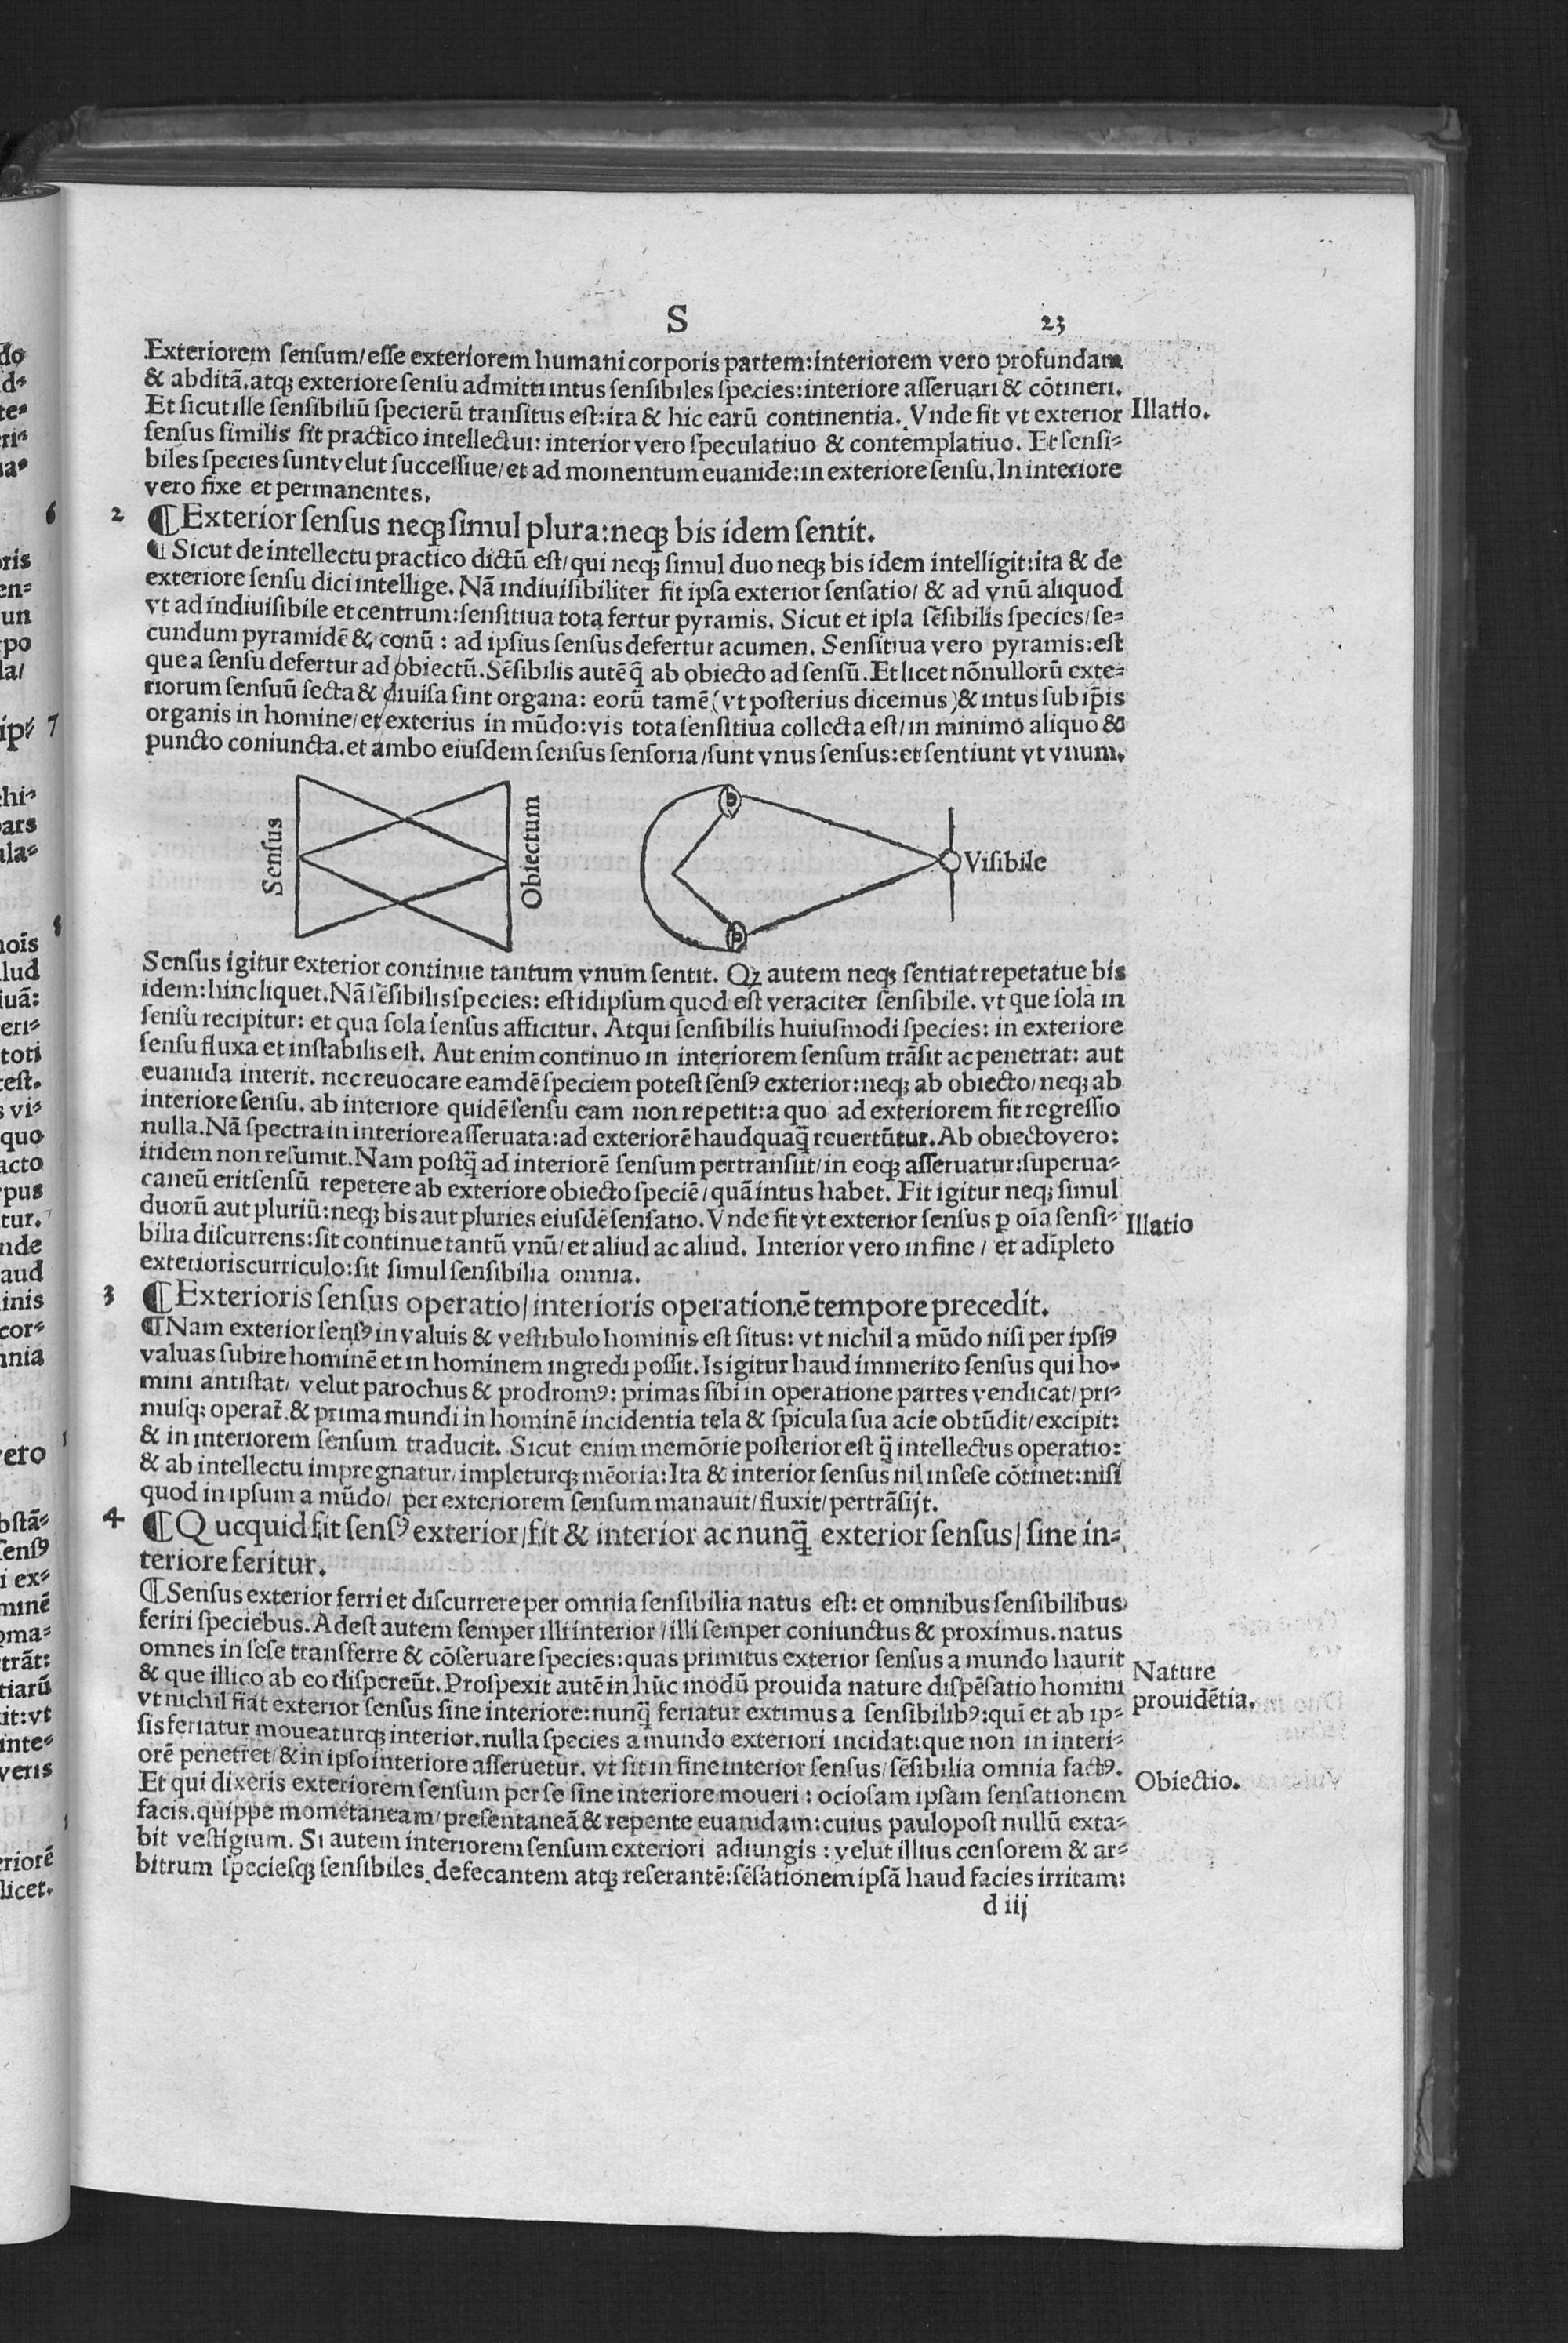 S 23
Exteriorem sensum/esse exteriorem humani corporis partem:interiorem vero profundam
& abditā.atqʒ exteriore sensu admitti intus sensibiles species:interiore asseruari & cōtineri.
Et sicut ille sensibiliū specierū transitus est:ita & hic earū continentia. Vnde fit vt exterior
Illatio.
sensus similis sit practico intellectui: interior vero speculatiuo & contemplatiuo. Et sensi-
biles species sunt velut successiue/et ad momentum euanide:in exteriore sensu. In interiore
vero fixe et permanentes.
2 ¶Exterior sensus neqʒ simul plura:neqʒ bis idem sentit.
¶ Sicut de intellectu practico dictū est/qui neqʒ simul duo neqʒ bis idem intelligit:ita & de
exteriore sensu dici intellige. Nā indiuisibiliter fit ipsa exterior sensatio/ & ad vnū aliquod
vt ad indiuisibile et centrum:sensitiua tota fertur pyramis. Sicut et ipsa sēsibilis species/se-
cundum pyramidē & conū : ad ipsius sensus defertur acumen. Sensitiua vero pyramis:est
que a sensu defertur ad obiectū.Sēsibilis autē q̄ ab obiecto ad sensū. Et licet nōnullorū exte-
riorum sensuū secta & diuisa sint organa: eorū tamē (vt posterius dicemus)& intus sub ip̄is
organis in homine/et exterius in mūdo:vis tota sensitiua collecta est/in minimo aliquo &
puncto coniuncta.et ambo eiusdem sensus sensoria/sunt vnus sensus:et sentiunt vt vnum.
Sensus
Obiectum
Visibile
Sensus igitur exterior continue tantum vnum sentit. Qʒ autem neqʒ sentiat repetatue bis
idem:hinc liquet.Nā sēsibilis species: est id ipsum quod est veraciter sensibile. vt que sola in
sensu recipitur: et qua sola sensus afficitur. Atqui sensibilis huiusmodi species: in exteriore
sensu fluxa et instabilis est. Aut enim continuo in interiorem sensum trāsit ac penetrat: aut
euanida interit. nec reuocare eamdē speciem potest sensꝰ exterior:neqʒ ab obiecto/neqʒ ab
interiore sensu. ab interiore quidē sensu eam non repetit:a quo ad exteriorem fit regressio
nulla.Nā spectra in interiore asseruata:ad exteriorē haudquaq̄ reuertūtur.Ab obiecto vero:
itidem non resumit.Nam postq̄ ad interiorē sensum pertransiit/in eoqʒ asseruatur:superua-
caneū erit sensū repetere ab exteriore obiecto speciē/quā intus habet. Fit igitur neqʒ simul
duorū aut pluriū:neqʒ bis aut pluries eiusdē sensatio. Vnde fit vt exterior sensus ꝑ oīa sensi-
Illatio
bilia discurrens:sit continue tantū vnū/et aliud ac aliud. Interior vero in fine / et adīpleto
exterioris curriculo:sit simul sensibilia omnia.
3 ¶Exterioris sensus operatio/interioris operationē tempore precedit.
¶Nam exterior sensꝰ in valuis & vestibulo hominis est situs: vt nichil a mūdo nisi per ipsiꝰ
valuas subire hominē et in hominem ingredi possit. Is igitur haud immerito sensus qui ho-
mini antistat/ velut parochus & prodromꝰ: primas sibi in operatione partes vendicat/pri-
musqʒ operat̄.& prima mundi in hominē incidentia tela & spicula sua acie obtūdit/excipit:
& in interiorem sensum traducit. Sicut enim memōrie posterior est q̄ intellectus operatio:
& ab intellectu impregnatur/impleturqʒ mēoria:Ita & interior sensus nil in sese cōtinet:nisi
quod in ipsum a mūdo/ per exteriorem sensum manauit/fluxit/pertrāsijt.
4 ¶Q ucquid fit sensꝰ exterior/fit & interior ac nunq̄ exterior sensus/sine in-
teriore feritur.
¶Sensus exterior ferri et discurrere per omnia sensibilia natus est: et omnibus sensibilibus
feriri speciebus.Adest autem semper illi interior/illi semper coniunctus & proximus.natus
omnes in sese transferre & cōseruare species:quas primitus exterior sensus a mundo haurit
& que illico ab eo dispereūt.Prospexit autē in hūc modū prouida nature dispēsatio homini
Nature
prouidētia.
vt nichil fiat exterior sensus sine interiore:nunq̄ feriatur extimus a sensibilibꝰ:qui et ab ip-
sis feriatur moueaturqʒ interior.nulla species a mundo exteriori incidat:que non in interi-
orē penetret/&in ipso interiore asseruetur. vt sit in fine interior sensus/sēsibilia omnia factꝰ.
Et qui dixeris exteriorem sensum per se sine interiore moueri : ociosam ipsam sensationem
Obiectio.
facis.quippe mometaneam/presentaneā & repente euanidam:cuius paulopost nullū exta-
bit vestigium. Si autem interiorem sensum exteriori adiungis : velut illius censorem & ar-
bitrum speciesqʒ sensibiles defecantem atqʒ reserantē:sēsationem ipsā haud facies irritam:
d iij